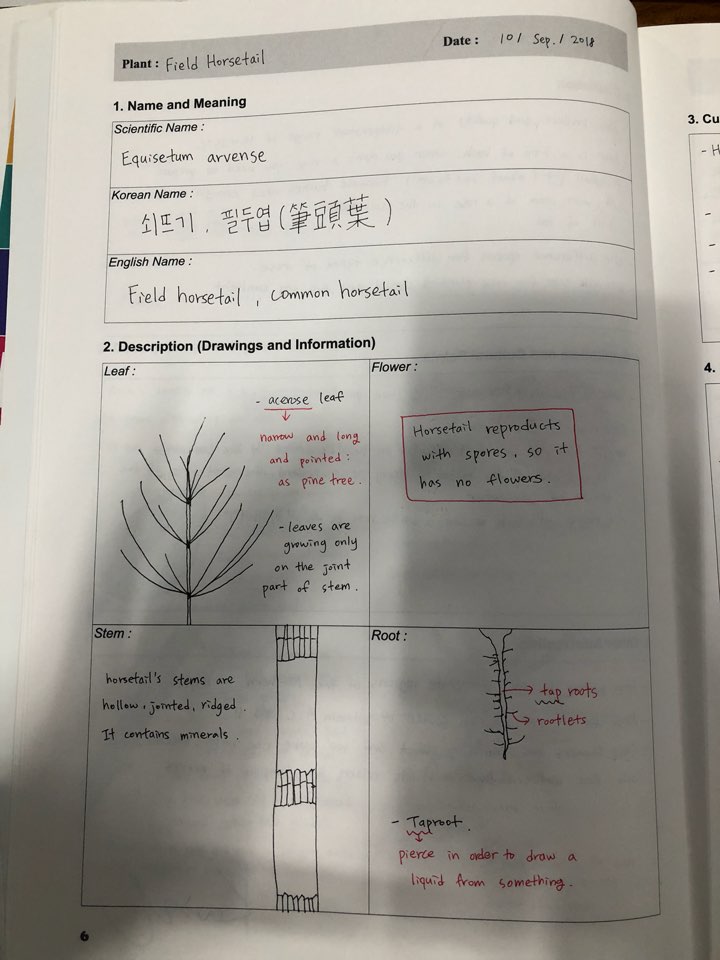 Plant : Field Horsetail
Date : 10/ Sep. / 2018
1. Name and Meaning
Scientific Name :
Equisetum arvense
Korean Name :
쇠뜨기, 필두엽(筆頭葉)
English Name :
Field horsetail, common horsetail
2. Description (Drawings and Information)
Leaf :
- acerose leaf
narrow and long
and pointed :
as pine tree.
- leaves are
growing only
on the joint
part of stem.
Flower :
Horsetail reproducts
with spores, so it
has no flowers.
Stem :
horsetail's stems are
hollow, jointed, ridged.
It contains minerals.
Root :
tap roots
rootlets
- Taproot.
pierce in order to draw a
liquid from something.
6
3. Cu
- H
-
-
-
4.